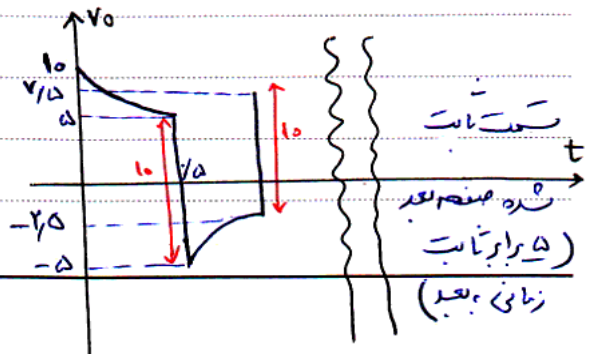 v₀
۱۰
۷/۵
۵
۱۰
۱/۵
۱۰
t
-۲,۵
-۵
قسمت ثابت
شده صفحه بعد
(۵ برابر ثابت
زمانی بعد)